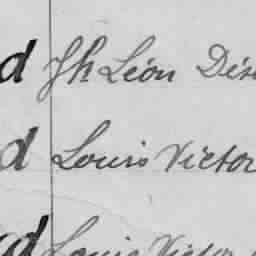 d Jh Léon Dési
d Louis Victor
d Louis Victor